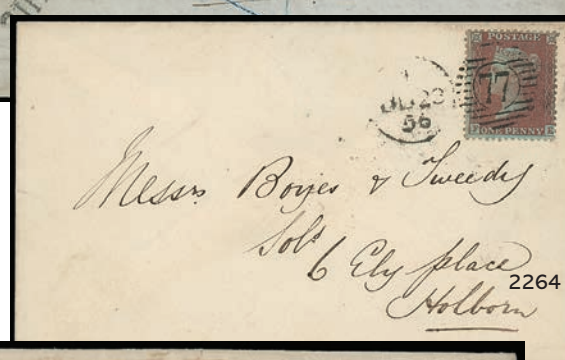 POSTAGE
77
ONE PENNY
23
56
Messrs Boyes & Tweedy
Solrs
6 Ely place
Holborn
2264